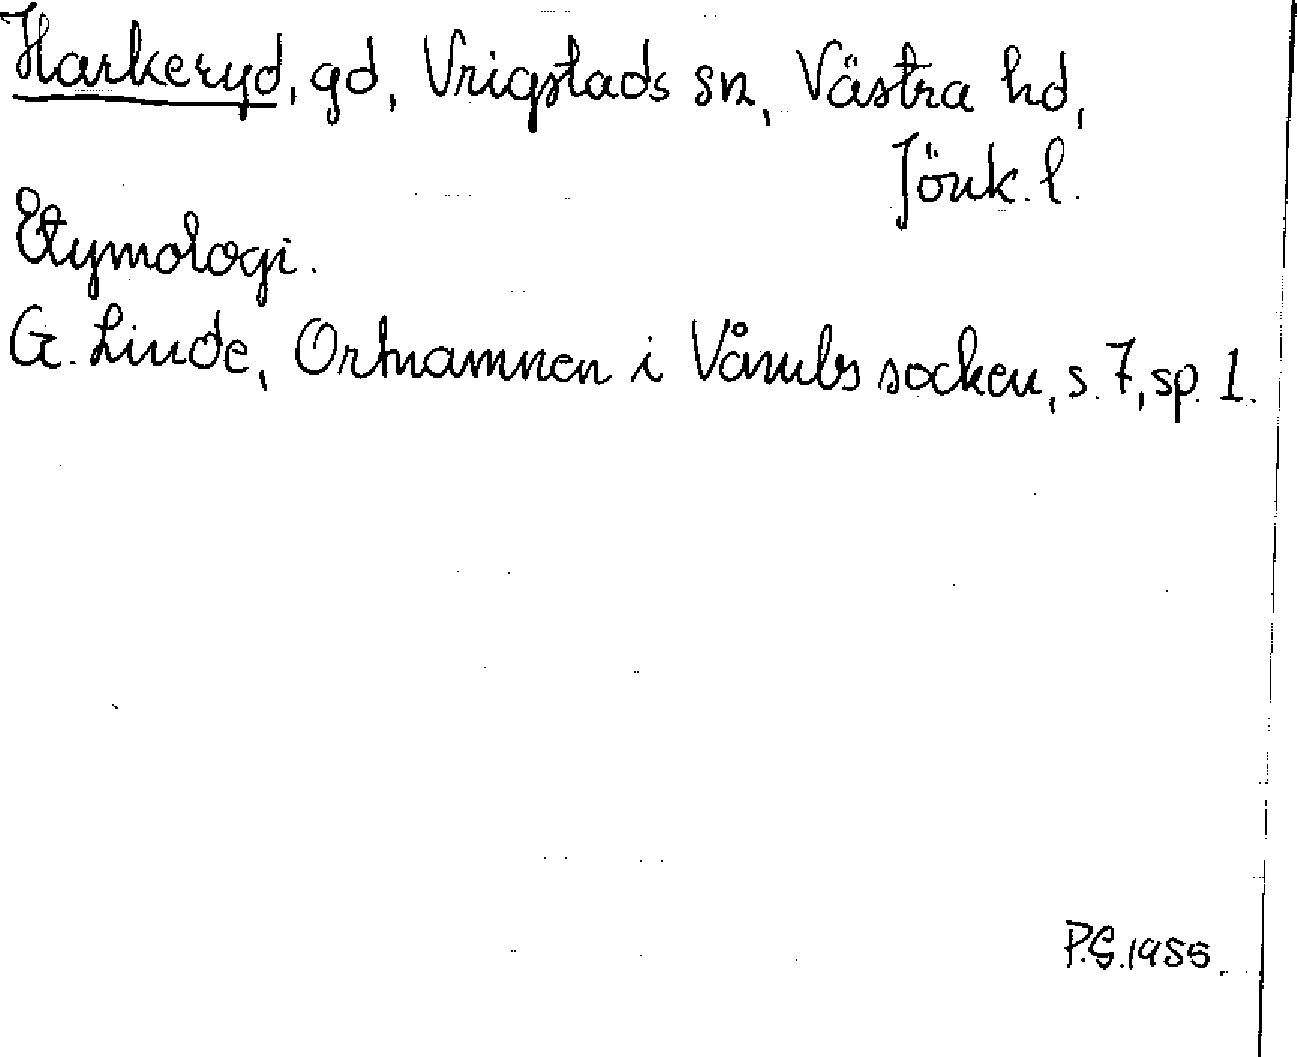 Harkeryd, gd, Vrigstads sn, Västra hd,
Jönk. l.
Etymologi.
G. Linde, Ortnamnen i Vånubs socken, s. 7, sp. 1.
P.G. 1955.